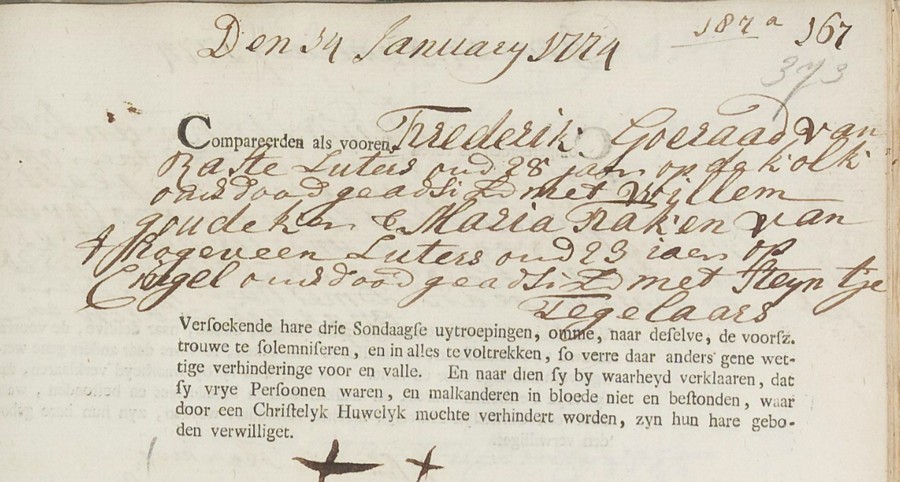 Den 14 January 1774
187a 167
373
Compareerden als vooren Frederik Goeraad van
Raste Luters oud 28 jaar op de kolk
ouders dood geadsisteerd met Willem
goudeken & Maria Raken van
Hogeveen Luters oud 23 jaer op
Cingel ouders dood geadsisteerd met Steyntje
Tegelaars
Versoekende hare drie Sondaagse uytroepingen, omme, naar deselve, de voorsz.
trouwe te solemniseren, en in alles te voltrekken, so verre daar anders gene wet-
tige verhinderinge voor en valle. En naar dien sy by waarheyd verklaaren, dat
sy vrye Persoonen waren, en malkanderen in bloede niet en bestonden, waar
door een Christelyk Huwelyk mochte verhindert worden, zyn hun hare gebo-
den verwilliget.